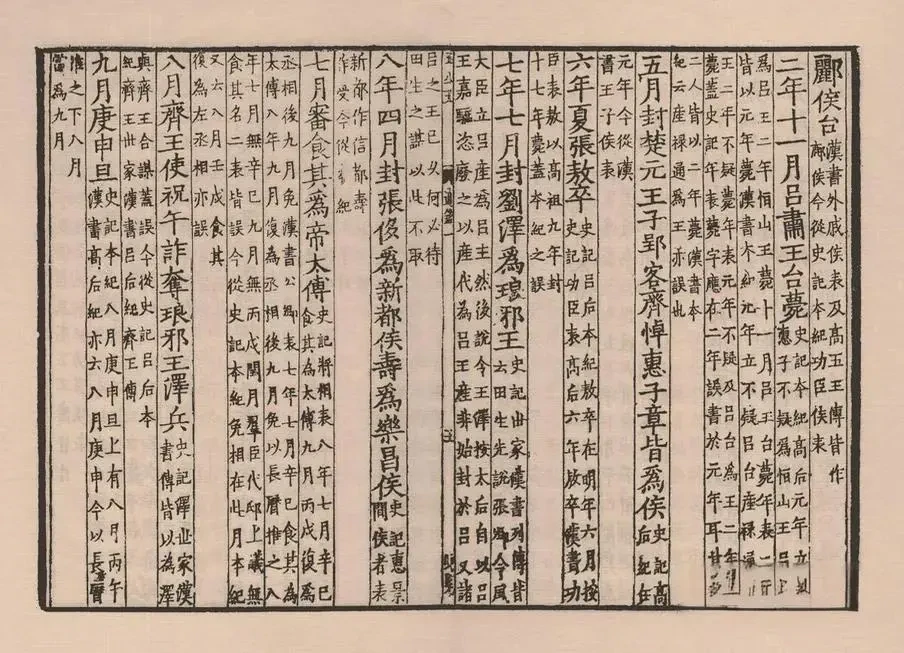 酈侯台 漢書外戚侯表及高五王傳皆作
鄜侯今從史記本紀功臣侯表
二年十一月呂肅王台薨 史記本紀高后元年立
惠子不疑爲恒山王呂
爲呂王二年恒山王薨十一月呂王台薨年表二
皆以元年薨漢書本紀元年立不疑呂台産祿通
王二年不疑薨年表元年不疑及呂台爲王二年
薨蓋史記年表薨字應在二年誤書於元年耳其
二人皆以二年薨漢書本
紀云産祿通爲王亦誤也
五月封楚元王子郢客齊悼惠子章皆爲侯 史記高
后紀在
元年今從漢
書王子侯表
六年夏張敖卒 史記呂后本紀敖卒在明年六月按
史記功臣表高后六年敖卒漢書功
臣表敖以高祖九年封
十七年薨蓋本紀之誤
七年七月封劉澤爲琅邪王 史記世家漢書列傳皆
云田生先說張卿令風
大臣立呂産爲呂王然後說令王澤按太后自以呂
王嘉驕恣廢之以産代爲呂王産非始封於呂又諸
呂之王已久何必待
田生之謀以此不取
通鑑
五
八年四月封張侈爲新都侯壽爲樂昌侯 史記惠景
間侯者表
新都作信都壽
作受今從本紀
七月審食其爲帝太傅 史記將相表八年七月辛巳
食其爲太傅九月丙戌復爲
丞相後九月免漢書公卿表七年七月辛巳食其爲
太傅八年九月復爲丞相後九月免以長曆推之八
年七月無辛巳九月無丙戌閏月羣臣代邸上議無
食其名二表皆誤今從史記本紀免相在此月本紀
又云八月壬戌食其
復為左丞相亦誤
八月齊王使祝午詐奪琅邪王澤兵 史記澤世家漢
書傳皆以為澤
與齊王合謀蓋誤今從史記呂后本
紀齊王世家漢書呂后紀齊王傳
九月庚申旦 史記本紀八月庚申旦上有八月丙午
漢書高后紀亦云八月庚申今以長曆
推之下八月
當爲九月